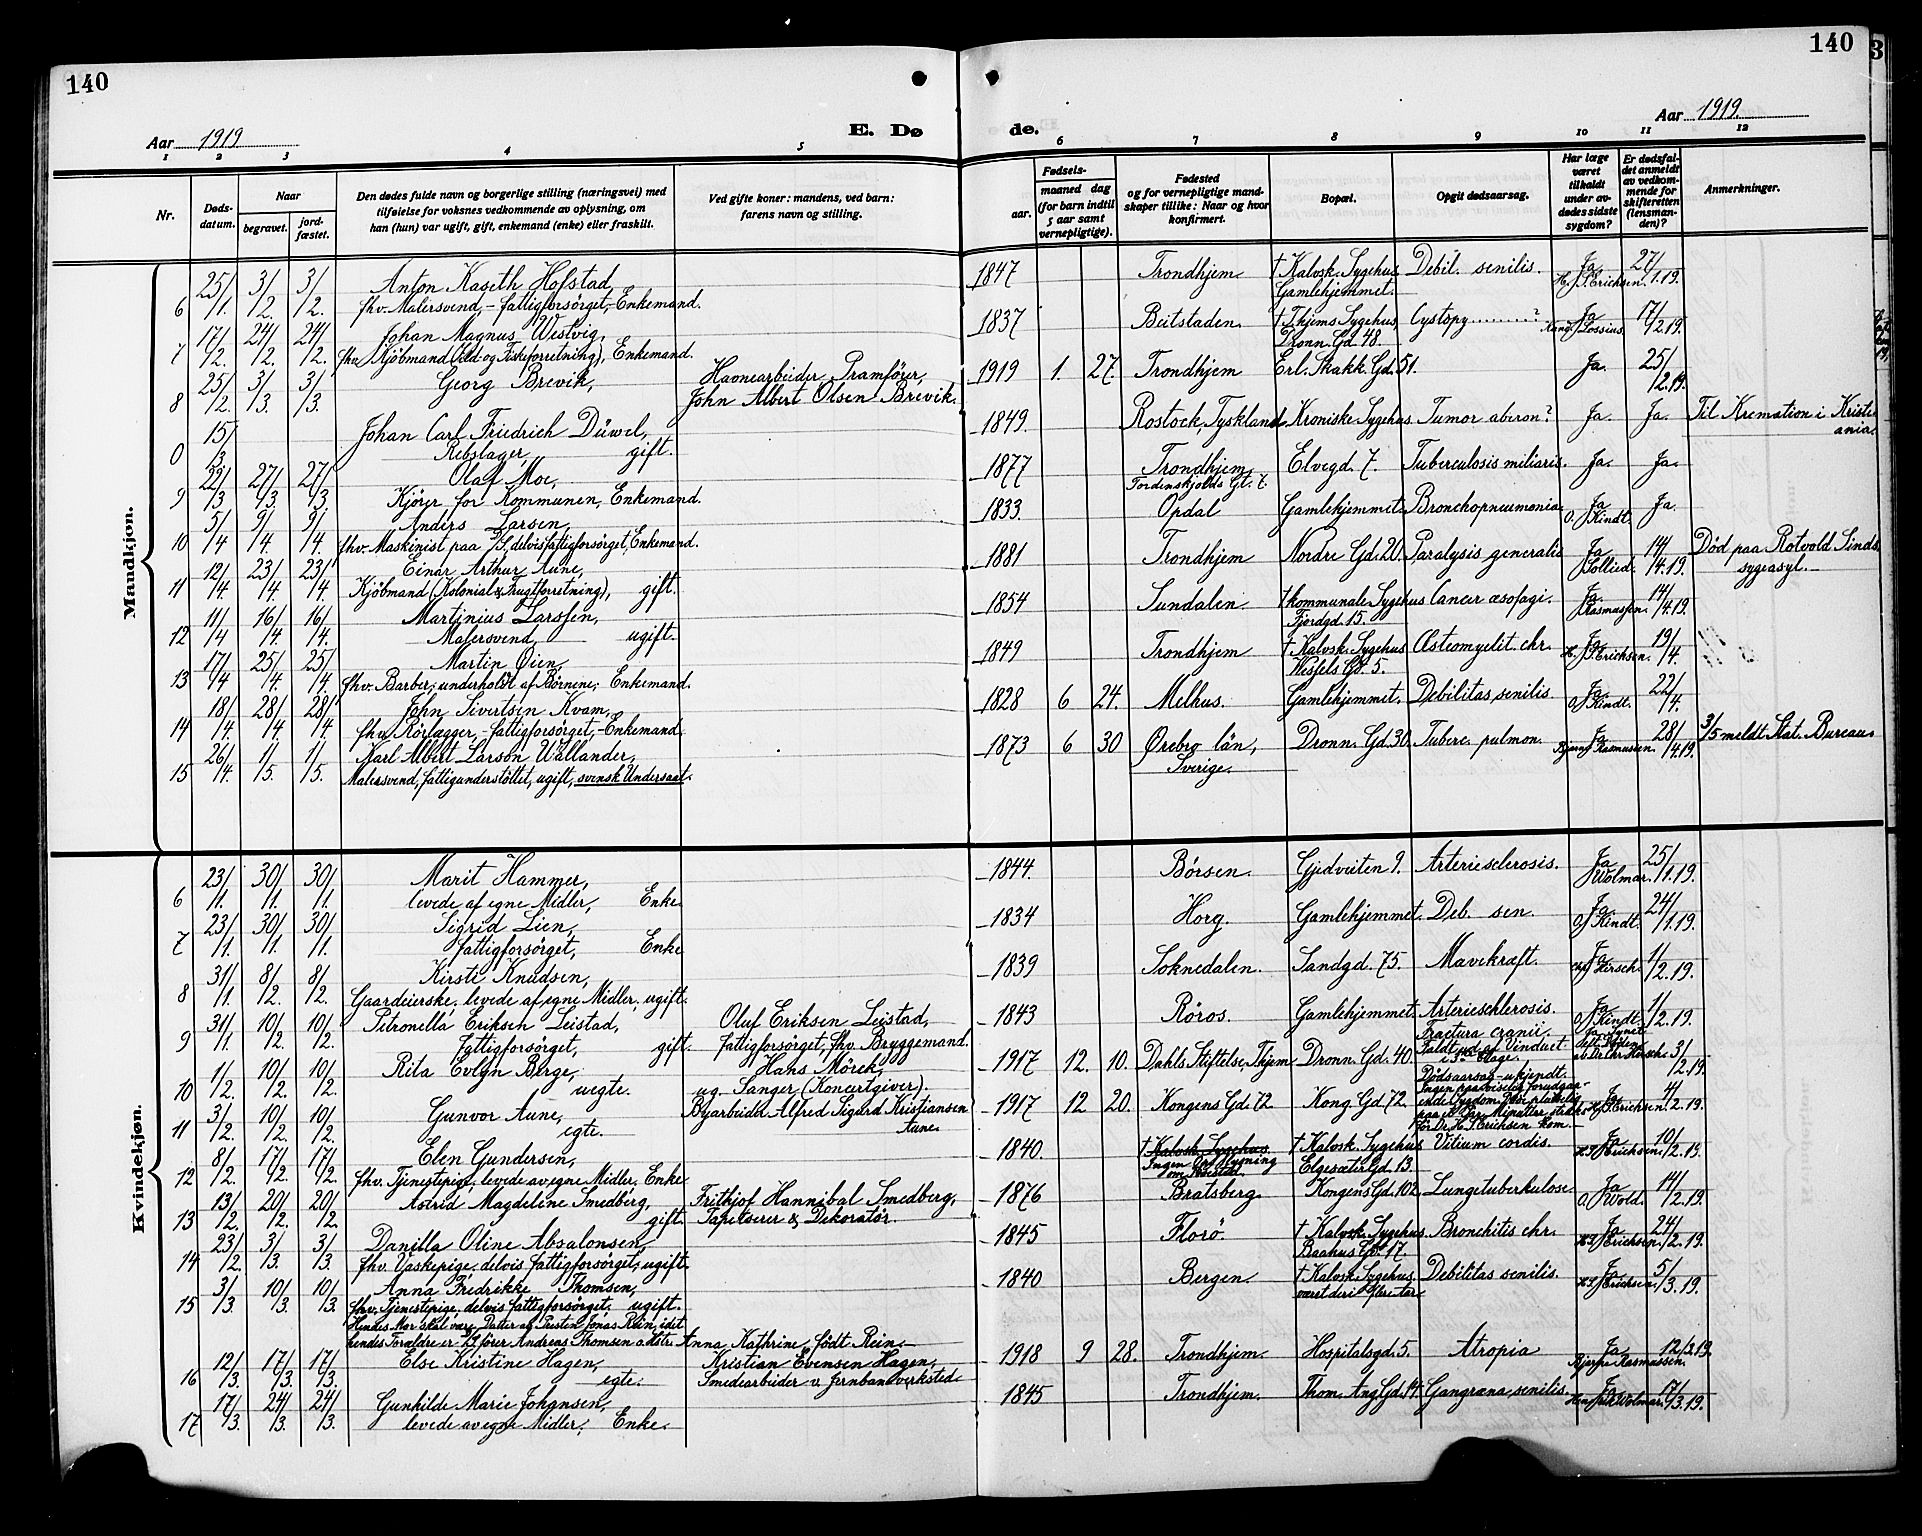 140
140
Aar 1919
E. Dø
de.
Aar 1919.
1 2 3 4 5 6 7 8 9 10 11 12
Nr.
Døds-
datum.
Naar
begravet.
jord-
fæstet.
Den dødes fulde navn og borgerlige stilling (næringsvei) med
tilføielse for voksnes vedkommende av oplysning, om
han (hun) var ugift, gift, enkemand (enke) eller fraskilt.
Ved gifte koner: mandens, ved barn:
farens navn og stilling.
Fødsels-
aar.
maaned dag
(for barn indtil
5 aar samt
vernepligtige).
Fødested
og for vernepligtige mand-
skaper tillike: Naar og hvor
konfirmert.
Bopæl.
Opgit dødsaarsag.
Har læge
været
tilkaldt
under av-
dødes sidste
sygdom?
Er dødsfal-
det anmeldt
av vedkom-
mende for
skifteretten
(lensman-
den)?
Anmerkninger.
Mandkjøn.
6 25/1. 3/2. 3/2. Anton Kaseth Hofstad, 1847 Trondhjem † Kalvsk. Sygehus Debil. senilis. Ja 27/1.19.
fhv. Malersvend,- fattigforsørget,- Enkemand. Gamlehjemmet. H. J. S. Erichsen.
7 17/2. 24/2. 24/2. Johan Magnus Westvig, 1837 Beitstaden. † Thjems Sygehus Cystopy..........? Ja 17/2.19.
fhv. Kjøbmand (Sild- og Fiskeforretning), Enkemand. Dronn. Gd 48. Lossius.
8 25/2. 3/3. 3/3. Georg Brevik, Havnearbeider, Pramfører, 1919 1. 27. Trondhjem Erl. Skakk. Gd. 51. Ja. 25/2.19.
John Albert Olsen Brevik.
0 15/3. Johan Carl Friedrich Düwel, 1849. Rostock, Tyskland Kroniske Sygehus. Tumor aberon? Ja. Ja. Til Kremation i Kristi-
Rebslager, gift. ania.
9 22/3 27/3. 27/3. Olaf Moe, 1877 Trondhjem, Elvegd. 7. Tuberculosis miliaris. Ja. Ja.
Kjører for Kommunen, Enkemand. Tordenskjolds Gt. 7.
10 5/4 9/4. 9/4. Anders Larsen, 1833. Opdal Gamlehjemmet. Bronchopneumonia Ja Ja.
fhv. Maskinist paa D/S, delvis fattigforsørget, Enkemand. O. Kindt.
11 12/4. 23/4. 23/4. Einar Arthur Aune, 1881 Trondhjem Nordre Gd. 20. Paralysis generalis Ja 14/4.19. Død paa Rotvold Sinds-
Kjøbmand (Kolonial & Frugtforretning), gift. Sollied. sygeasyl.
12 11/4 16/4. 16/4. Martinius Larssen, 1854 Sundalen. † kommunale Sygehus Cancer æsofagi. Ja 14/4.19.
Malersvend, ugift. Fjordgd 15. Rasmussen.
13 17/4 25/4. 25/4. Martin Øien, 1849 Trondhjem † Kalvsk. Sygehus Osteomyelit. chr. Ja 19/4.
fhv. Barber; underholdt af Børnene; Enkemand. Wessels Gd. 5. H. J. S. Erichsen.
14 18/4. 28/4. 28/4. John Sivertsen Kvam, 1828 6 24. Melhus. Gamlehjemmet. Debilitas senilis Ja. 22/4.
fhv. Rørlægger,- fattigforsørget,- Enkemand. O. Kindt.
15 26/4. 1/5. 1/5. Karl Albert Larson Wallander, 1873 6 30 Ørebro län, Dronn. Gd. 30. Tuberc. pulmon. Ja 28/4.19. 3/5 meldt Stat. Bureau
Malersvend, fattigunderstøttet, ugift, svensk Undersaat. Sverige. Bjarne Rasmussen.
Kvindekjøn.
6 23/1. 30/1. 30/1. Marit Hammer, 1844. Børsen. Gjedveiten 9. Arteriesclerosis. Ja 25/1.19.
levede af egne Midler, Enke. Wolmar.
7 23/1. 30/1. 30/1. Sigrid Lien, 1834 Horg. Gamlehjemmet. Deb. sen. Ja 24/1.19.
fattigforsørget, Enke O. Kindt.
8 31/1. 8/2. 8/2. Kirsti Knudsen, 1839 Soknedalen. Sandgd. 75. Mavekræft. Ja 1/2.19.
Gaardeierske, levede af egne Midler, ugift. Chr. Hirsch.
9 31/1. 10/2. 10/2. Petronella Eriksen Leistad, Oluf Eriksen Leistad, 1843 Røros. Gamlehjemmet. Arteriesklerosis. Ja 1/2.19.
fattigforsørget, gift. fattigforsørget, fhv. Bryggemand. O. Kindt.
10 1/2. 10/2. 10/2. Rita Evlyn Berge, Hans Mörck, 1917 12. 10. Dahls Stiftelse, Thjem Dronn. Gd. 40. Fractura cranii. 3/2.19.
uegte. ug. Sanger (Koncertgiver). Faldt ud af Vinduet
i 3die Etage. Dr Chr. Hirsch
11 3/2. 10/2. 10/2. Gunvor Aune, Byarbeider Alfred Sigurd Kristiansen 1917 12 20. Kongens Gd. 72 Kong. Gd 72. Dødsaarsag - ukjendt. Ja 4/2.19.
egte. Aune. Ingen paaviselig forudgaa-
ende Sygdom. Døde pludselig H. J. S. Erichsen.
paa et Par Minutter, straks
før Dr. H. J. S. Erichsen kom.
12 8/2. 17/2. 17/2. Elen Gundersen, 1840. † Kalvsk. Sygehus. † Kalvsk. Sygehus Vitium cordis. Ja 10/2.19.
fhv. Tjenestepige, levede av egne Midler, Enke Ingen Oplysning Elgesæter Gd. 13. H. S. Erichsen.
om Fødested.
13 13/2. 20/2. 20/2. Astrid Magdeline Smedberg, Frithjof Hannibal Smedberg, 1876 Bratsberg. Kongens Gd. 102. Lungetuberkulose. Ja 14/2.19.
gift. Tapetserer & Dekoratör. O. Wold.
14 23/2. 3/3. 3/3. Danilla Oline Absalonsen, 1845 Florö. † Kalvsk. Sygehus. Bronchitis chr. Ja 24/2.19.
fhv. Vaskepige, delvis fattigforsørget, ugift. Baahus Gd. 17. H. S. Erichsen.
15 3/3. 10/3. 10/3. Anna Fredrikke Thomsen, 1840 Bergen. † Kalvsk. Sygehus. Debilitas senilis. Ja 5/3.19.
fhv. Tjenestepige, delvis fattigforsørget, ugift. været der i flere Aar. H. S. Erichsen.
Hendes Mor skal være Datter af Presten Jonas Rein, idet
hendes Forældre er Fører Andreas Thomsen o. Hstr. Anna Kathrine født Rein.
16 12/3. 17/3. 17/3. Else Kristine Hagen, Kristian Evensen Hagen, 1918 9 28. Trondhjem. Hospitalsgd. 5. Atropia Ja 12/3.19.
egte. Smedearbeider v. Jernbaneverksted. Bjarne Rasmussen.
17 17/3. 24/3. 24/3. Gunhilde Marie Johansen, 1845 Trondhjem. Thom. Ang. Gd. 14. Gangræna senilis. Ja 17/3.19.
levede av egne Midler, Enke. Wolmar.